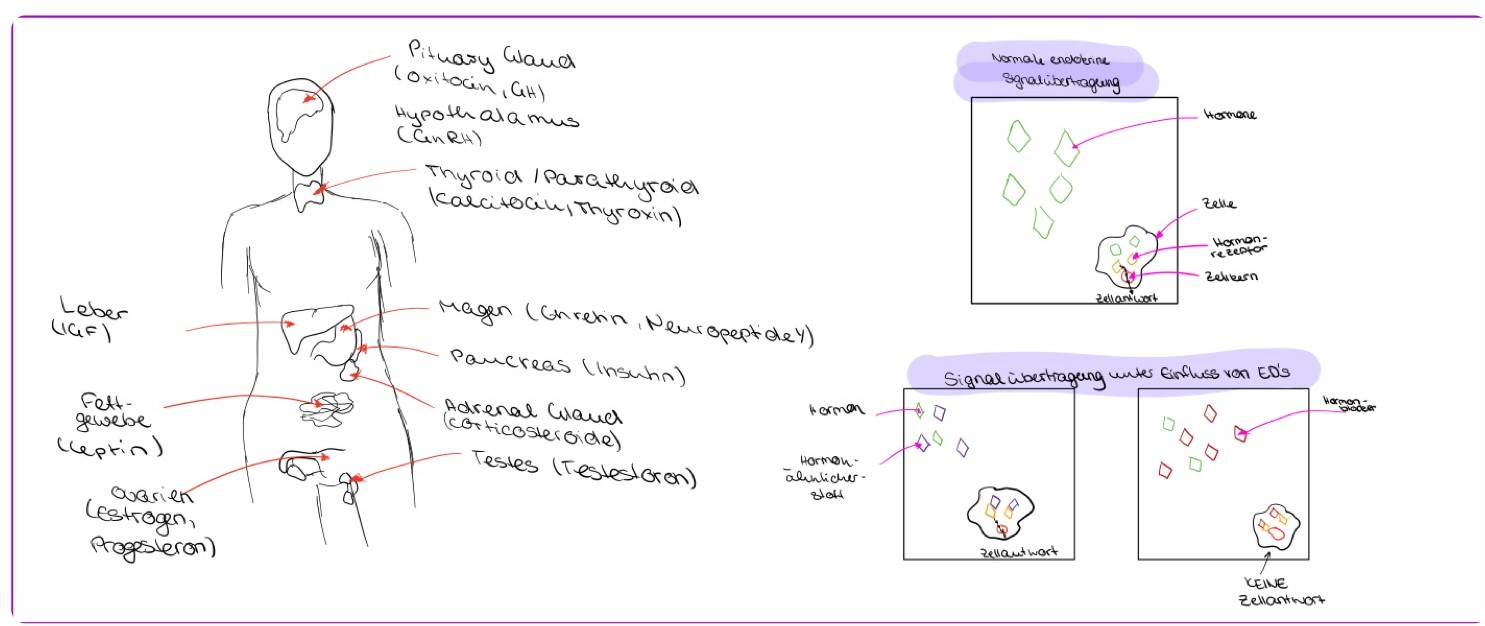 Pituary Gland
(Oxitocin, GH)
Hypothalamus
(GnRH)
Thyroid / Parathyroid
(Calcitocin, Thyroxin)
Leber
(IGF)
Magen (Ghrelin, Neuropeptide Y)
Pancreas (Insulin)
Fett-
gewebe
(Leptin)
Adrenal Gland
(Corticosteroide)
Testes (Testesteron)
Ovarien
(Estrogen,
Progesteron)
Normale endokrine
Signalübertragung
Hormone
Zelle
Hormon-
rezeptor
Zellkern
Zellantwort
Signalübertragung unter Einfluss von ED's
Hormon
Hormon-
ähnlicher-
stoff
Zellantwort
Hormon-
blocker
KEINE
Zellantwort